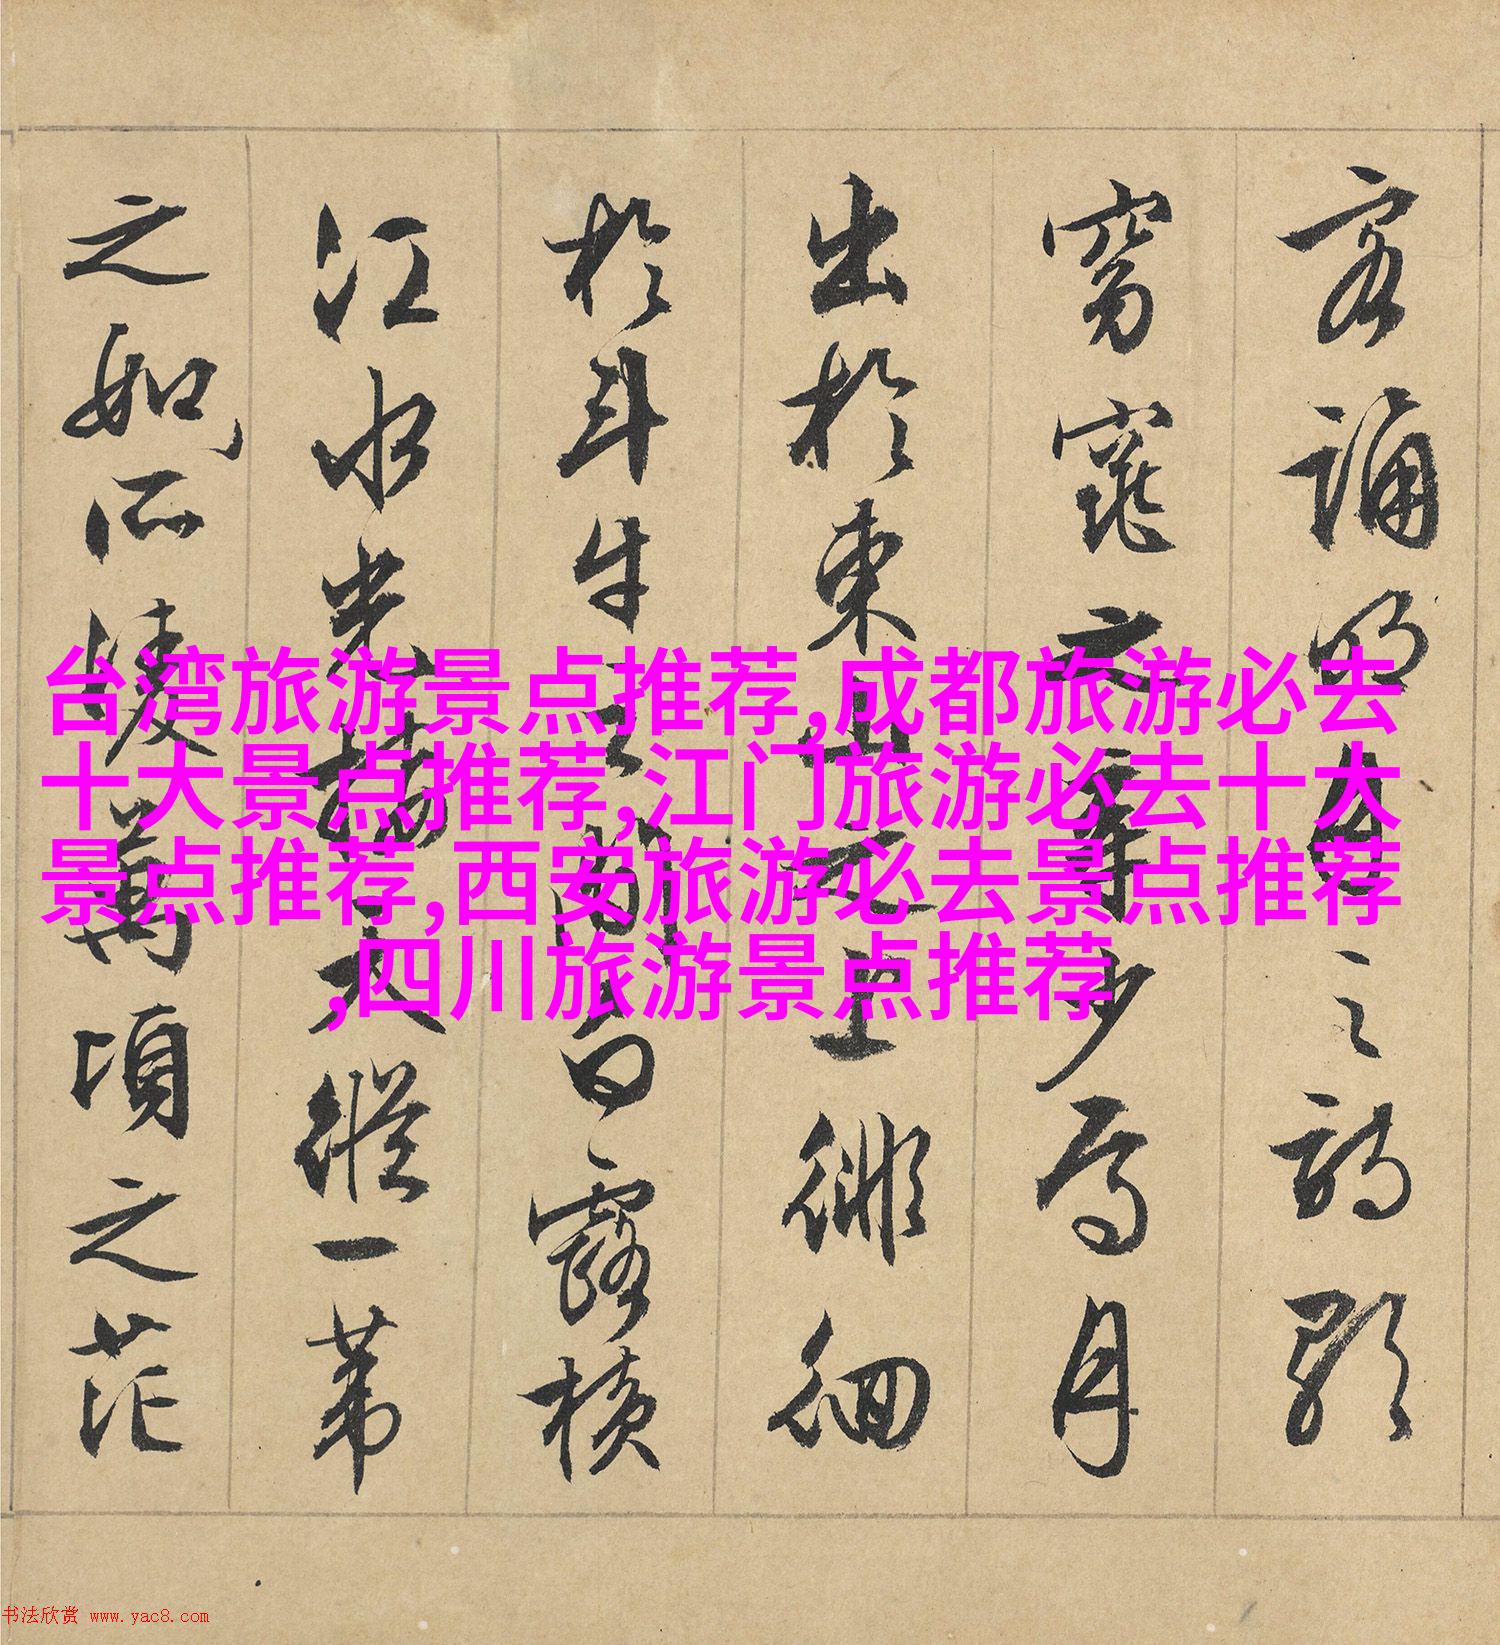 客誦明月之詩歌
窈窕之章少焉月
出於東山之上徘徊
於斗牛之間白露橫
江水光接天縱一葦
之如所陵萬頃之茫
台湾旅游景点推荐,成都旅游必去
十大景点推荐,江门旅游必去十大
景点推荐,西安旅游必去景点推荐
,四川旅游景点推荐
书法欣赏 www.yac8.com